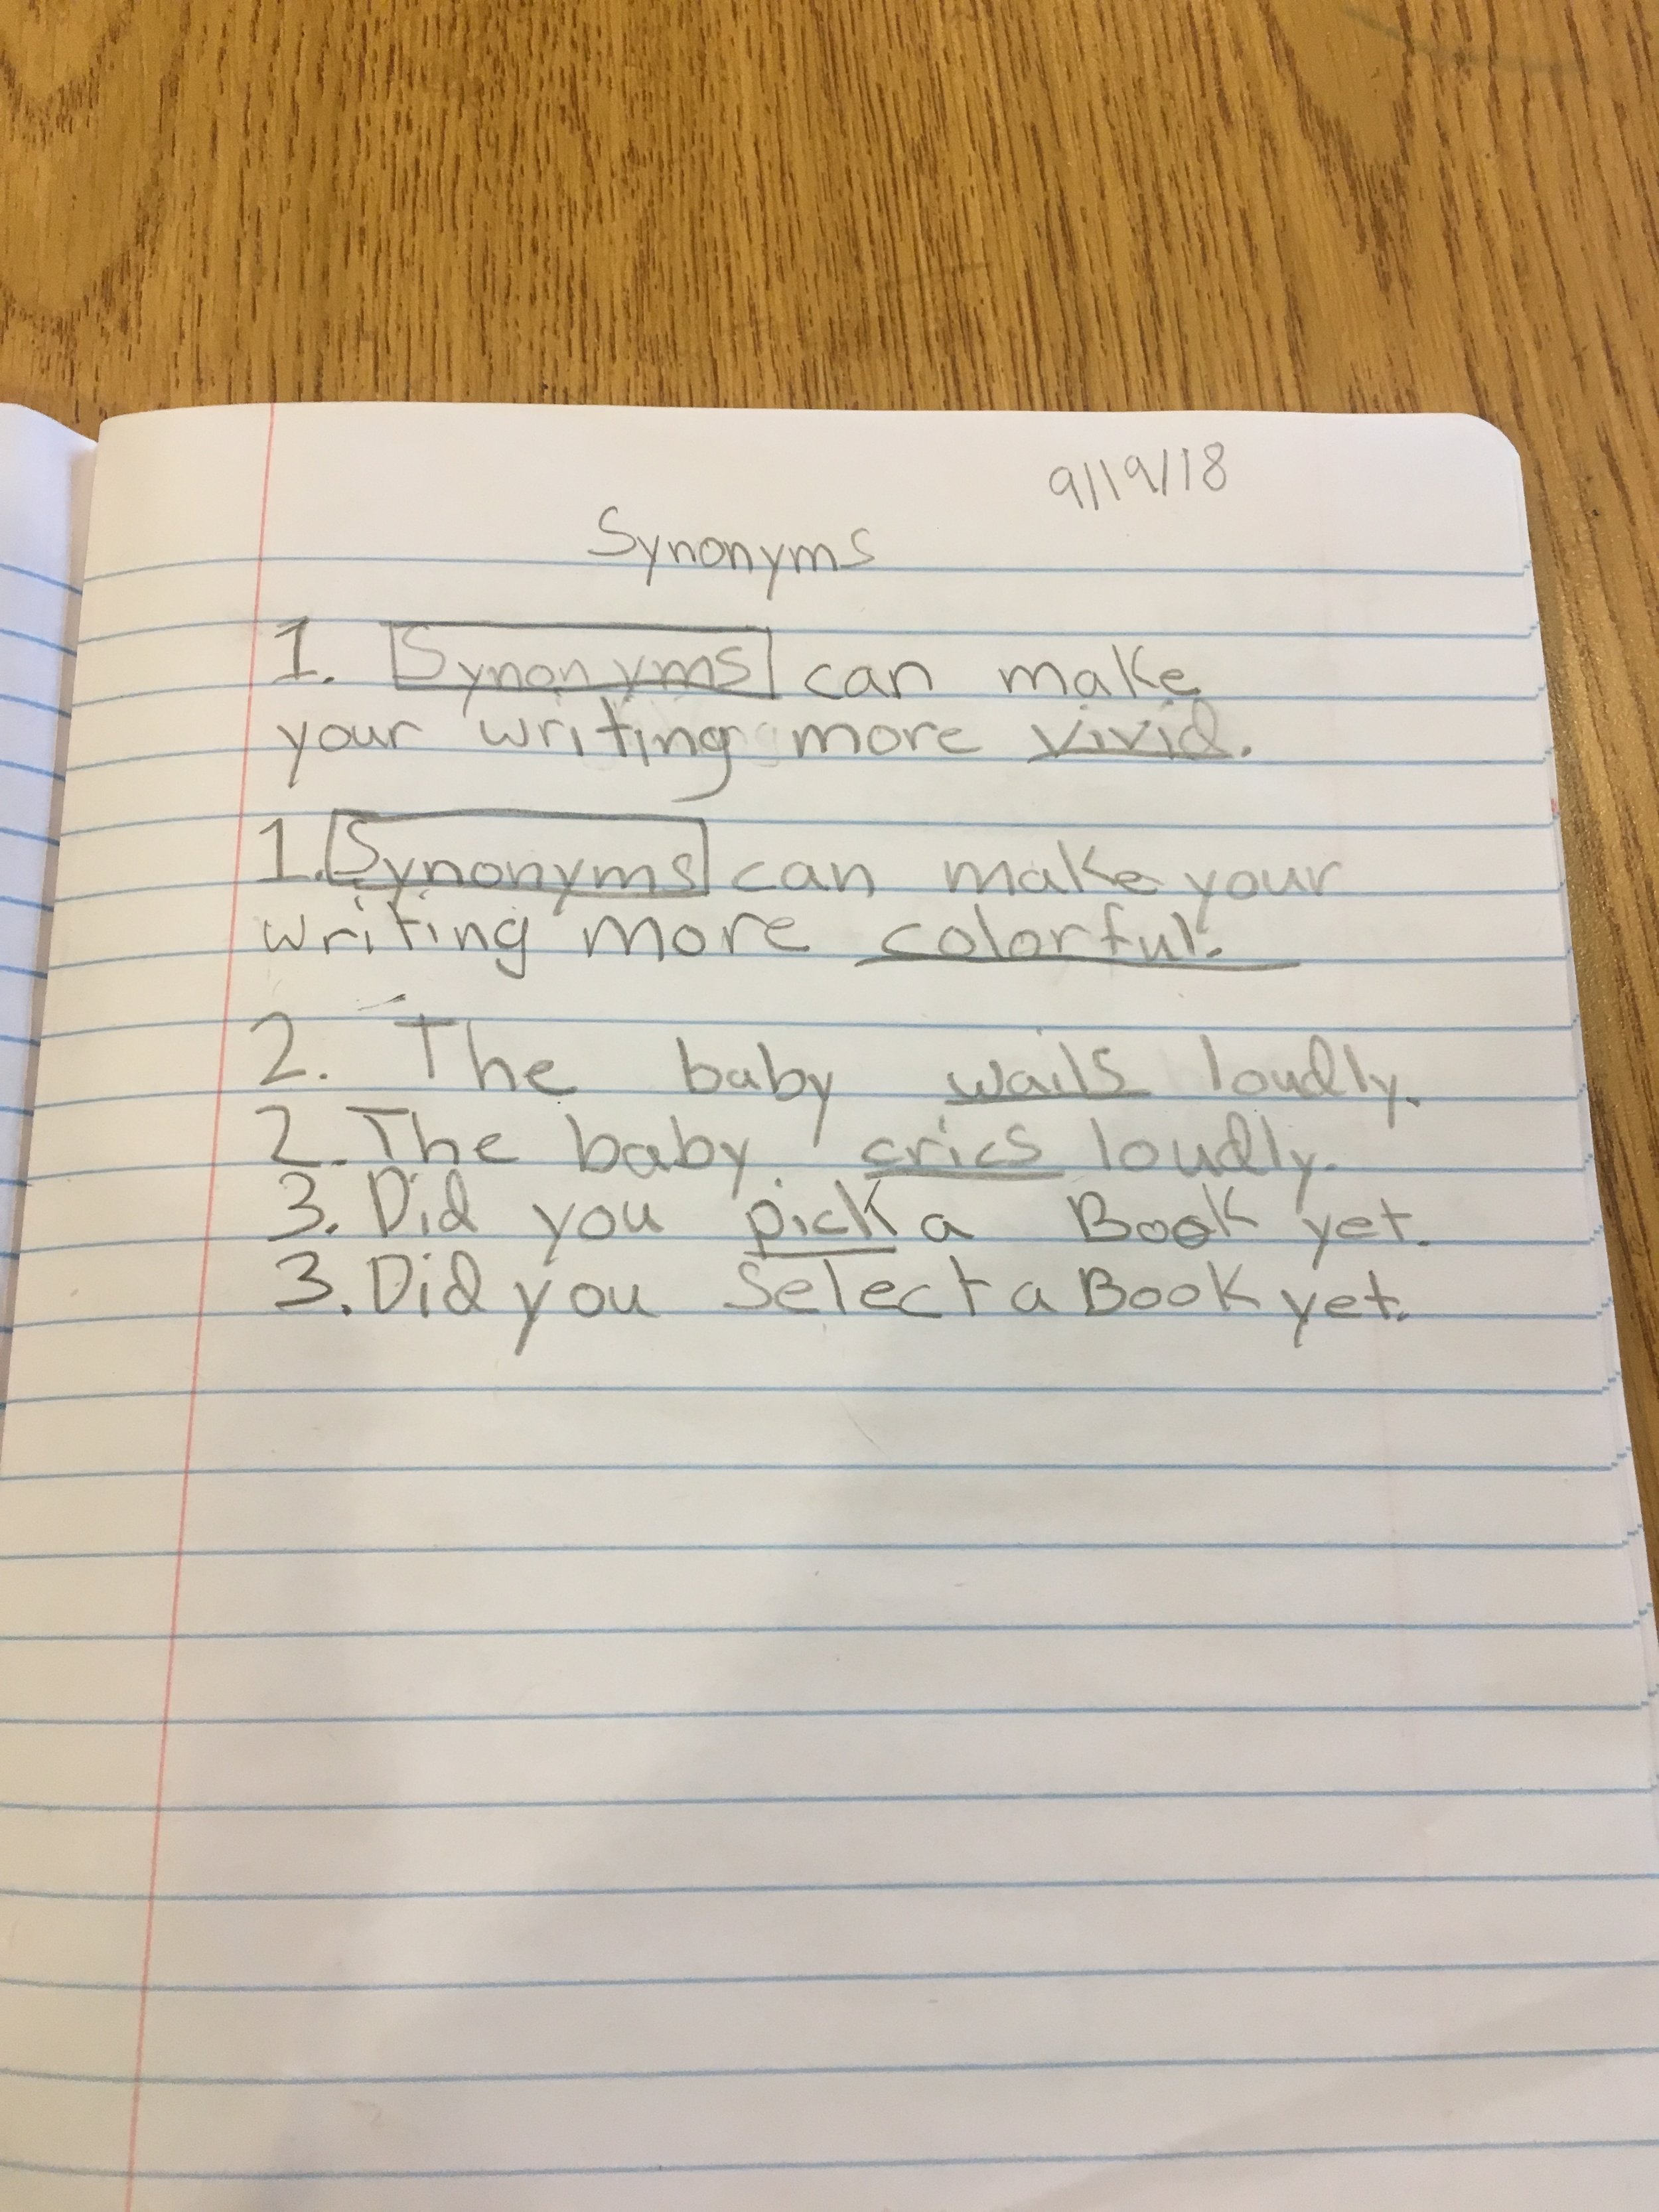 9/19/18
Synonyms
1. Synonyms can make
your writing more vivid.
1. Synonyms can make your
writing more colorful.
2. The baby wails loudly.
2. The baby cries loudly.
3. Did you pick a Book yet.
3. Did you Select a Book yet.